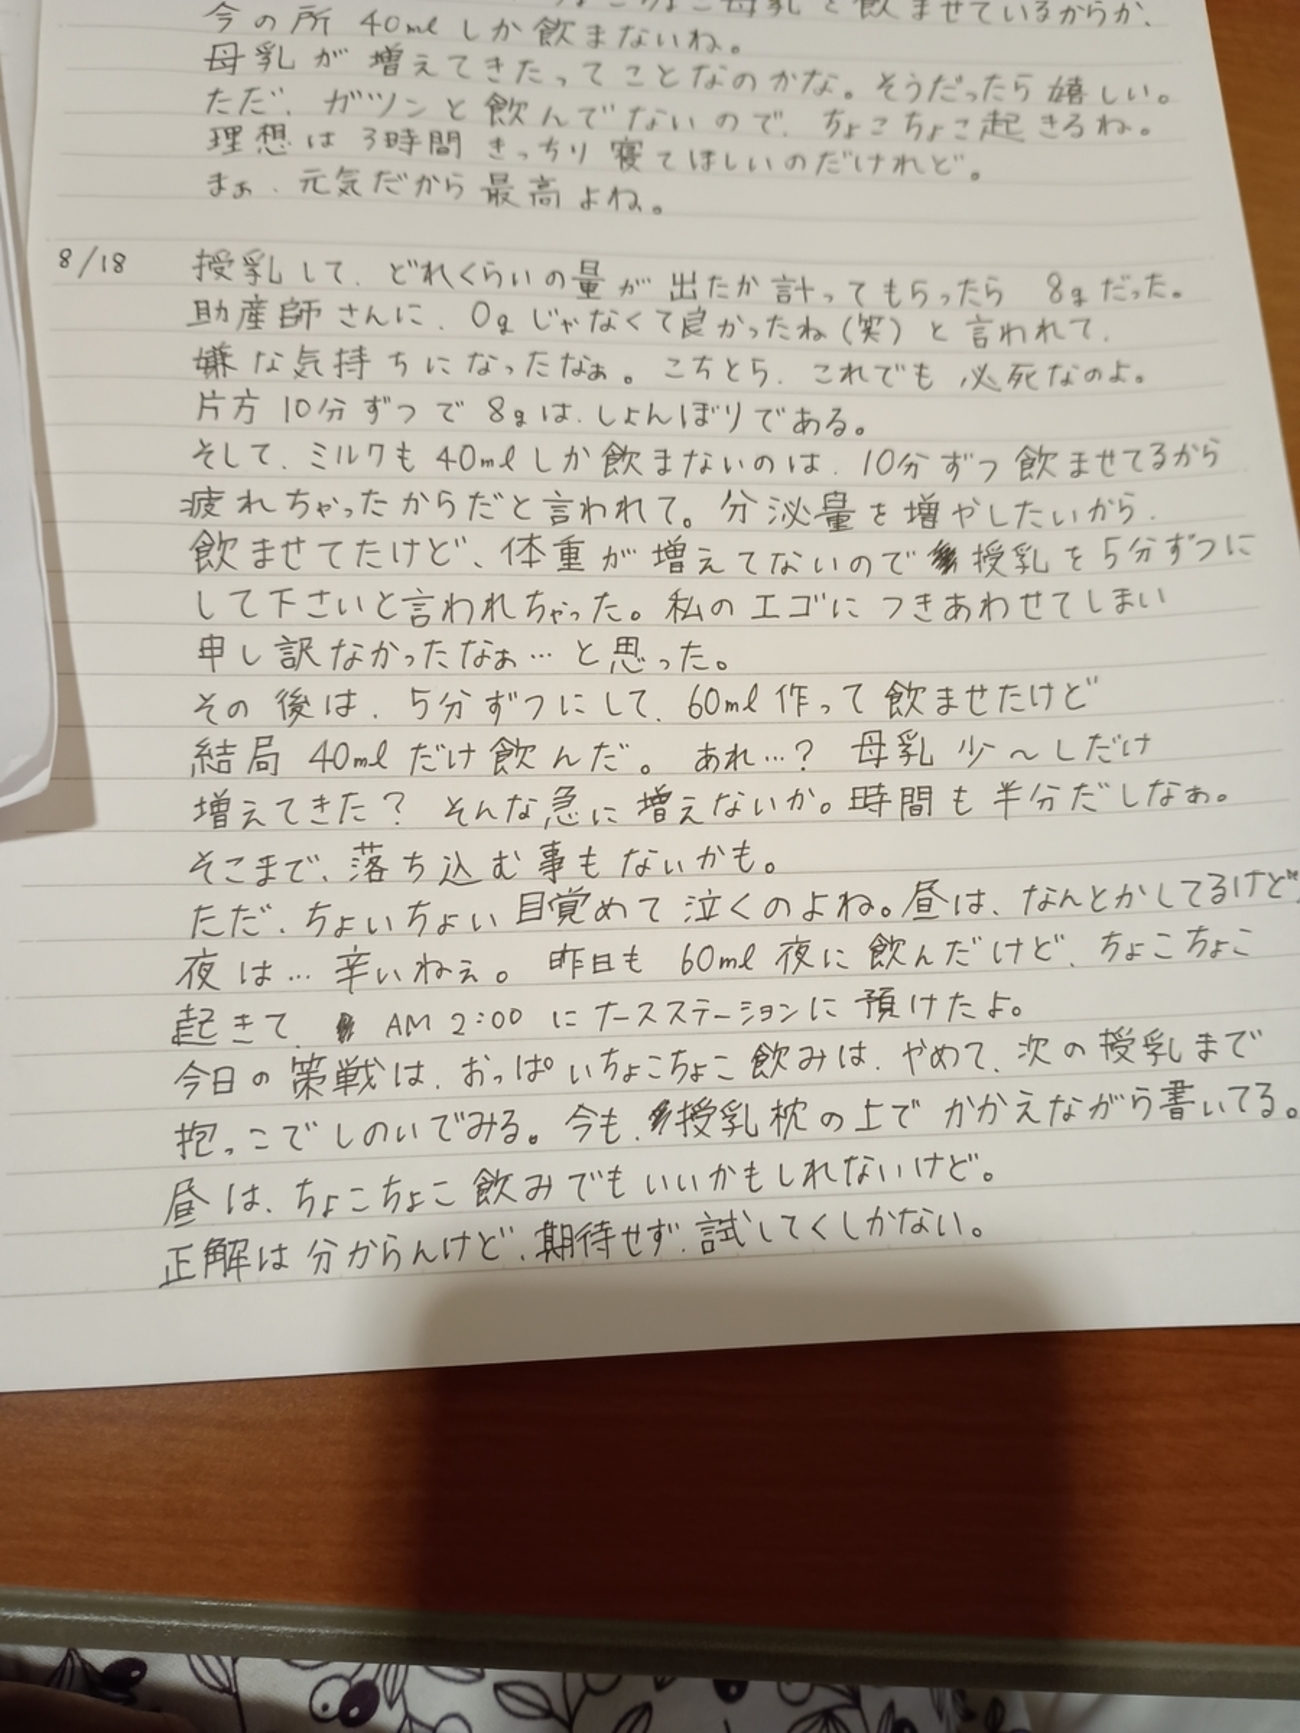 ちょこちょこ母乳を飲ませているからか、
今の所 40ml しか飲まないね。
母乳が増えてきたってことなのかな。そうだったら嬉しい。
ただ、ガツンと飲んでないので、ちょこちょこ起きるね。
理想は 3時間 きっちり寝てほしいのだけれど。
まぁ、元気だから最高よね。
8/18 授乳して、どれくらいの量が出たか計ってもらったら 8gだった。
助産師さんに、0gじゃなくて良かったね(笑)と言われて、
嫌な気持ちになったなぁ。こちとら、これでも必死なのよ。
片方10分ずつで 8gは、しょんぼりである。
そして、ミルクも 40mlしか飲まないのは、10分ずつ飲ませてるから
疲れちゃったからだと言われて。分泌量を増やしたいから、
飲ませてたけど、体重が増えてないので授乳を5分ずつに
して下さいと言われちゃった。私のエゴにつきあわせてしまい
申し訳なかったなぁ…と思った。
その後は、5分ずつにして、60ml作って飲ませたけど
結局 40mlだけ飲んだ。あれ…? 母乳 少〜しだけ
増えてきた? そんな急に増えないか。時間も半分だしなぁ。
そこまで、落ち込む事もないかも。
ただ、ちょいちょい目覚めて泣くのよね。昼は、なんとかしてるけど、
夜は… 辛いねぇ。昨日も 60ml 夜に飲んだけど、ちょこちょこ
起きて、AM 2:00 にナースステーションに預けたよ。
今日の策戦は、おっぱいちょこちょこ飲みは、やめて、次の授乳まで
抱っこでしのいでみる。今も、授乳枕の上でかかえながら書いてる。
昼は、ちょこちょこ飲みでもいいかもしれないけど。
正解は分からんけど、期待せず、試してくしかない。